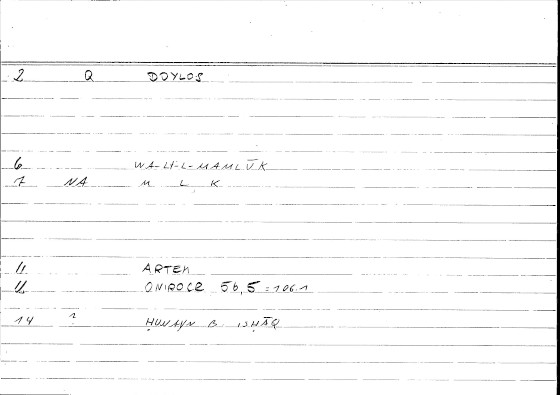 2 Q DOYLOS
6 WA-LI-L-MAMLŪK
7 NA M L K
11 ARTEM
12 ONIROCR 56,5 = 106.1
14 ? ḤUNAYN B. ISḤĀQ